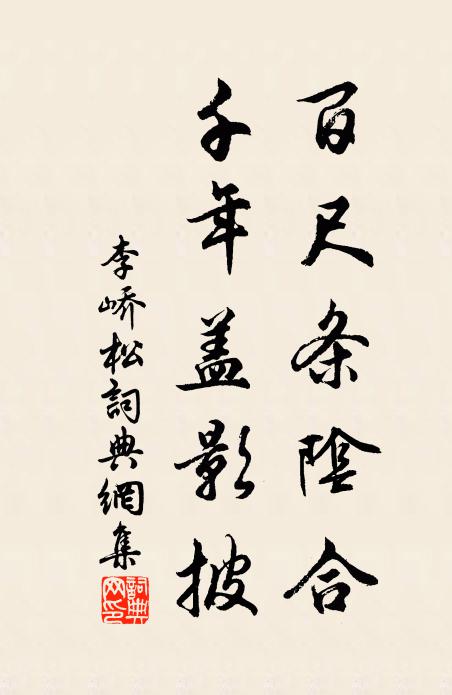 百尺条陰合
千年盖影披
李嶠松詞典網集
詞典网印